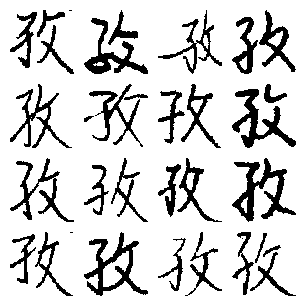 孜孜孜孜
孜孜孜孜
孜孜孜孜
孜孜孜孜